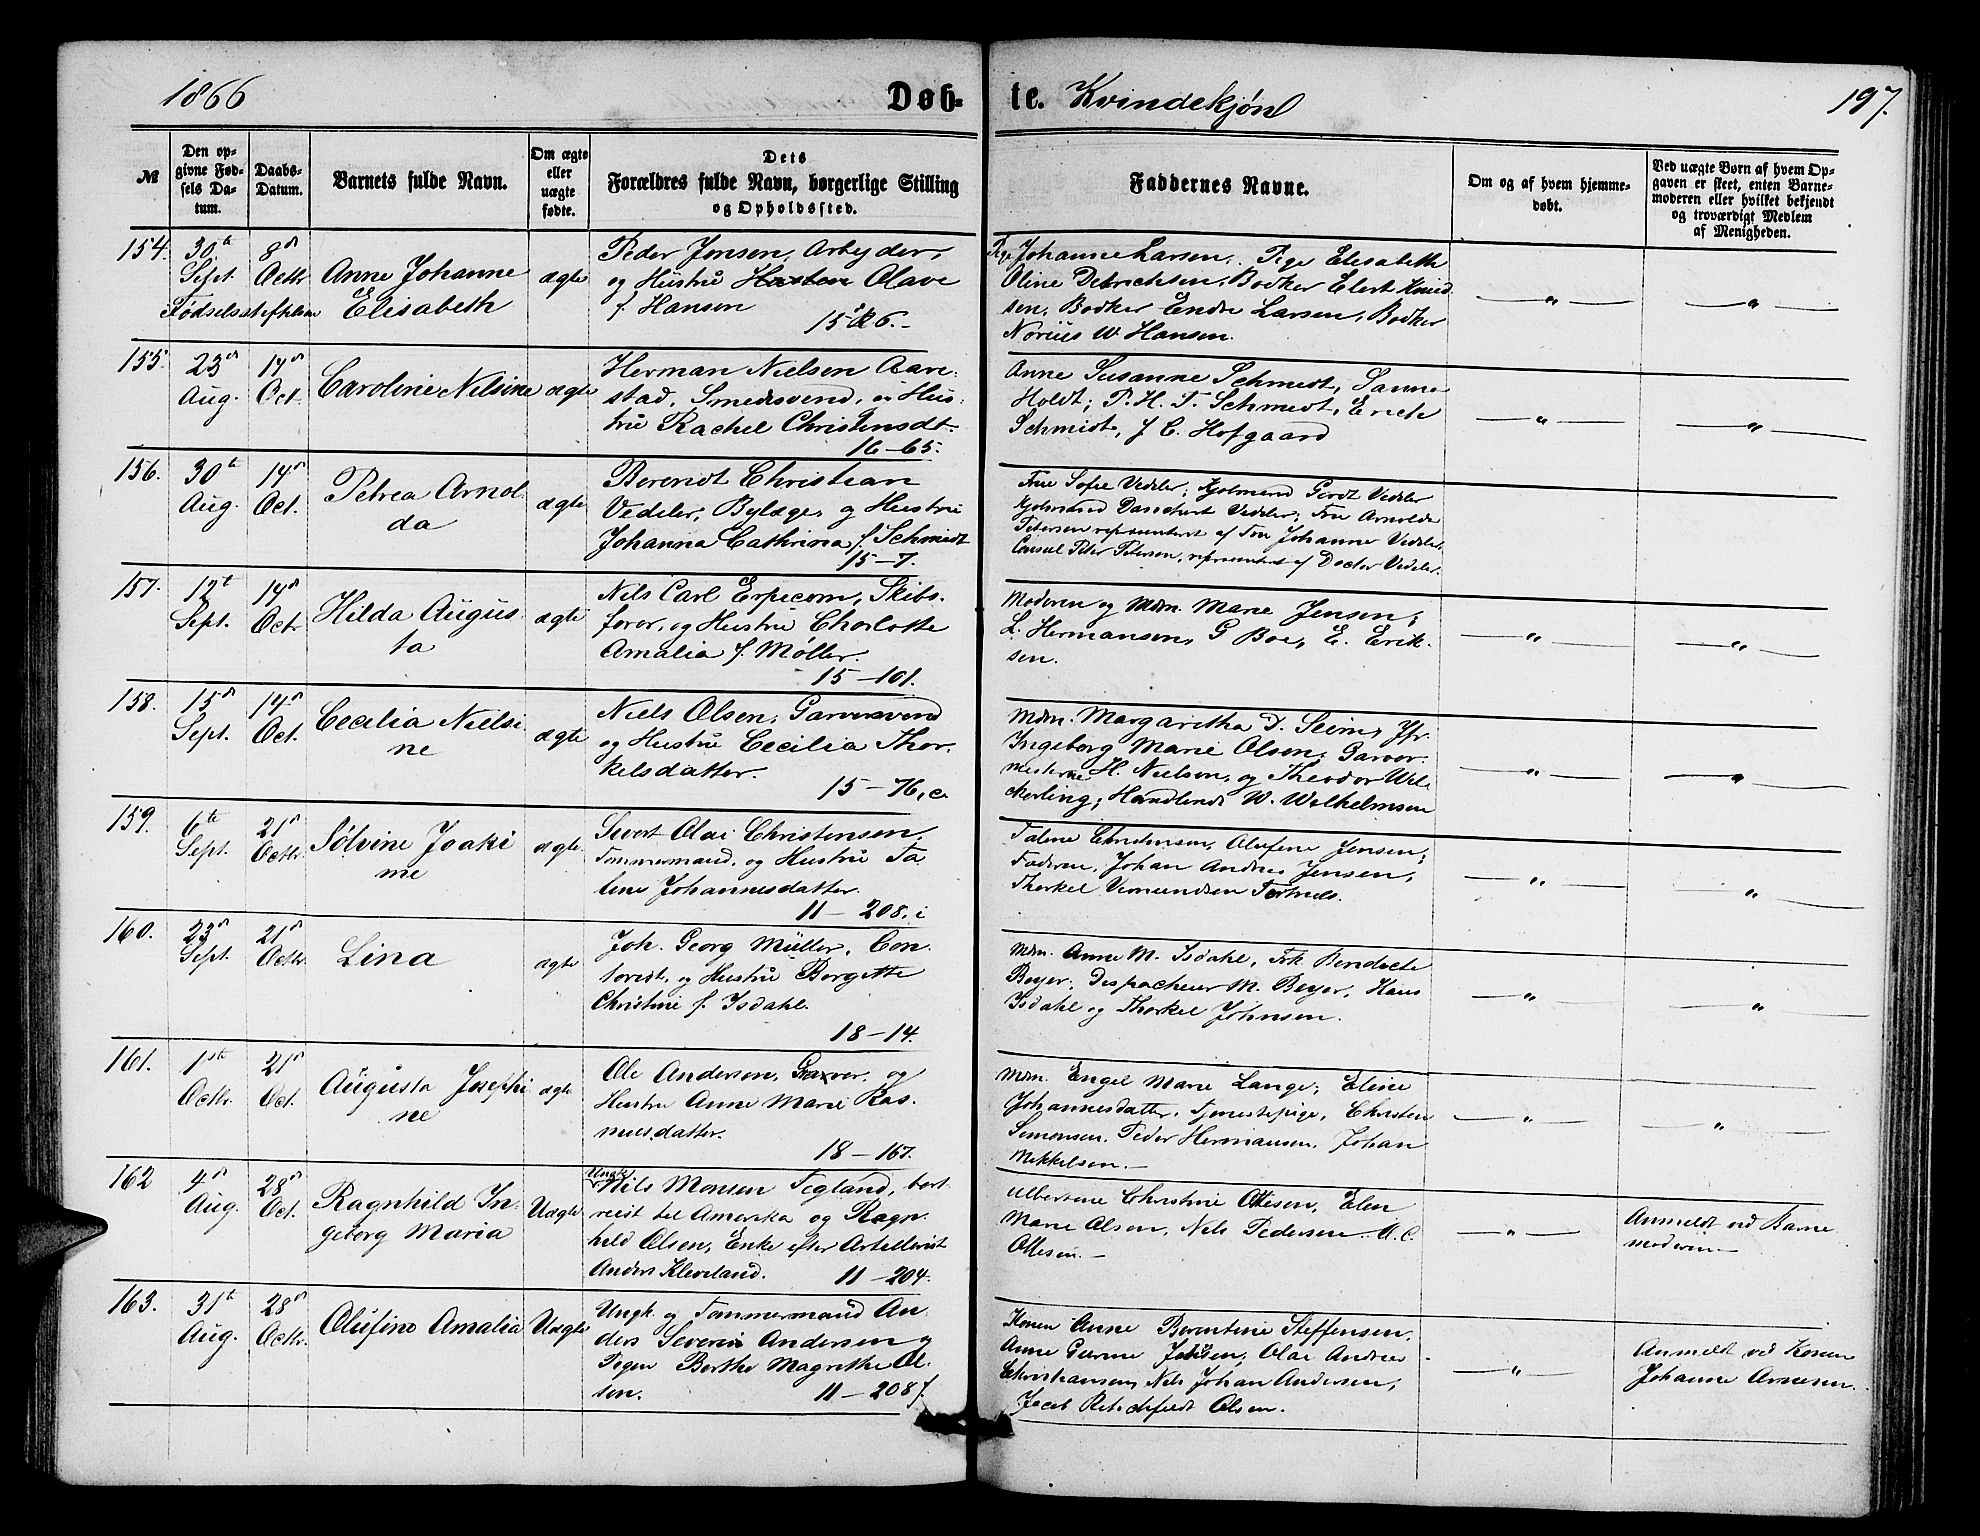 1866
Døb-
te. Kvindekjøn
197.
№
Den op-
givne Fød-
sels Da-
tum.
Daabs-
Datum.
Barnets fulde Navn.
Om ægte
eller
uægte
fødte.
Dets
Forældres fulde Navn, borgerlige Stilling
og Opholdssted.
Faddernes Navne.
Om og af hvem hjemme-
døbt.
Ved uægte Børn af hvem Op-
gaven er skeet, enten Barne-
moderen eller hvilket bekjendt
og troværdigt Medlem
af Menigheden.
154.
30te
Sept.
Fødselsstiftelsen
8de
Octbr
Anne Johanne
Elisabeth
ægte
Peder Jensen, Arbejder,
og Hustru Olave
f. Hansen
15
Pige Johanne Larsen, Pige Elisabeth
Oline Detrichsen, Bødker Elert Knud-
sen, Bødker Endre Larsen, Bødker
W. Hansen.
155.
23de
Aug.
14de
Oct.
Caroline Nilsine
ægte
Herman Nielsen Aare-
stad, Smedsvend, og Hus-
tru Rachel Christensdt.
16-65.
Anne Susanne Schmidt, Sanne
Holdt, P. H. T. Schmidt, Erich
Schmidt, J. C. Hofgaard
156.
30te
Aug.
14de
Oct.
Petrea Arnol-
da
ægte
Berendt Christian
Vedeler, Bylæge, og Hustru
Johanna Cathrina f. Schmidt
15-7.
Fru Sofie Vedeler, Kjøbmand Gerdt Vedeler
Kjøbmand Danckert Vedeler, Fru Arnolda
Petersen representeret af Fru Johanne Vedeler,
Consul Peter Petersen, representeret af Doctor Vedeler.
157.
12te
Sept.
14de
Octr
Hilda Augus-
ta
ægte
Nils Carl Erpecom, Skibs-
fører, og Hustru Charlotte
Amalia f. Møller.
15-101.
Moderen og Mdm. Marie Jensen,
L. Hermansen, G Boe, E. Erik-
sen.
158.
15de
Sept.
14de
Oct.
Cecilia Nielsi-
ne
ægte
Niels Olsen, Garversvend
og Hustru Cecilia Thor-
kelsdatter.
15-76, c.
Mdm. Margaretha D. Seim, Jfr.
Ingeborg Marie Olsen, Garver-
mesterne H. Nielsen, og Theodor Wil-
ckerling, Handlende W. Wilhelmsen
159.
6te
Sept.
21de
Octbr.
Sølvine Joaki-
me
ægte
Sivert Olai Christensen,
Tømmermand, og Hustru Ta-
lene Johannesdatter.
11-208, i
Talene Christensen, Olufine Jensen,
Faderen, Johan Andreas Jensen,
Thorkel Vemundsen
160.
23de
Sept.
21de
Octbr.
Lina
ægte
Joh. Georg Müller, Con-
, og Hustru Bergitte
Christine f. Isdahl.
18-14.
Mdm. Anne M. Isdahl, Frk Bendecte
Beyer, Despacheur M. Beyer, Hans
Isdahl og Thorkel Johnsen.
161.
1ste
Octbr.
21de
Oct.
Augusta Josephi-
ne
ægte
Ole Andersen, Graver, og
Hustru Anne Marie Ras-
musdatter.
18-167.
Mdm. Engel Marie Lange, Eline
Johannesdatter, Tjenestepige, Christen
Simonsen, Peder Hermansen, Johan
Mikkelsen.
162
4de
Aug.
28de
Oct.
Ragnhild In-
geborg Maria
Uægte
Ungk.
Nils Monsen Tegland, bort-
reist til Amerika og Ragn-
hild Olsen, Enke efter Artillerist
Anders Kleveland.
11-204.
Albertine Christine Ottesen, Elen
Marie Olsen, Nils Pedersen, A. C.
Ottesen.
Anmeldt ved Barne-
moderen
163.
31te
Aug.
28de
Octbr.
Olufine Amalia
Uægte
Ungk. og Tømmermand An-
ders Severin Andersen og
Pigen Berthe Magrethe Ol-
sen.
11-208 f.
Konen Anne Berentine Steffensen,
Anne Gurine Jensen, Olai Andreas
Christiansen, Nils Johan Andersen,
Jacob Olsen.
Anmeldt ved Konen
Johanne Arnesen.